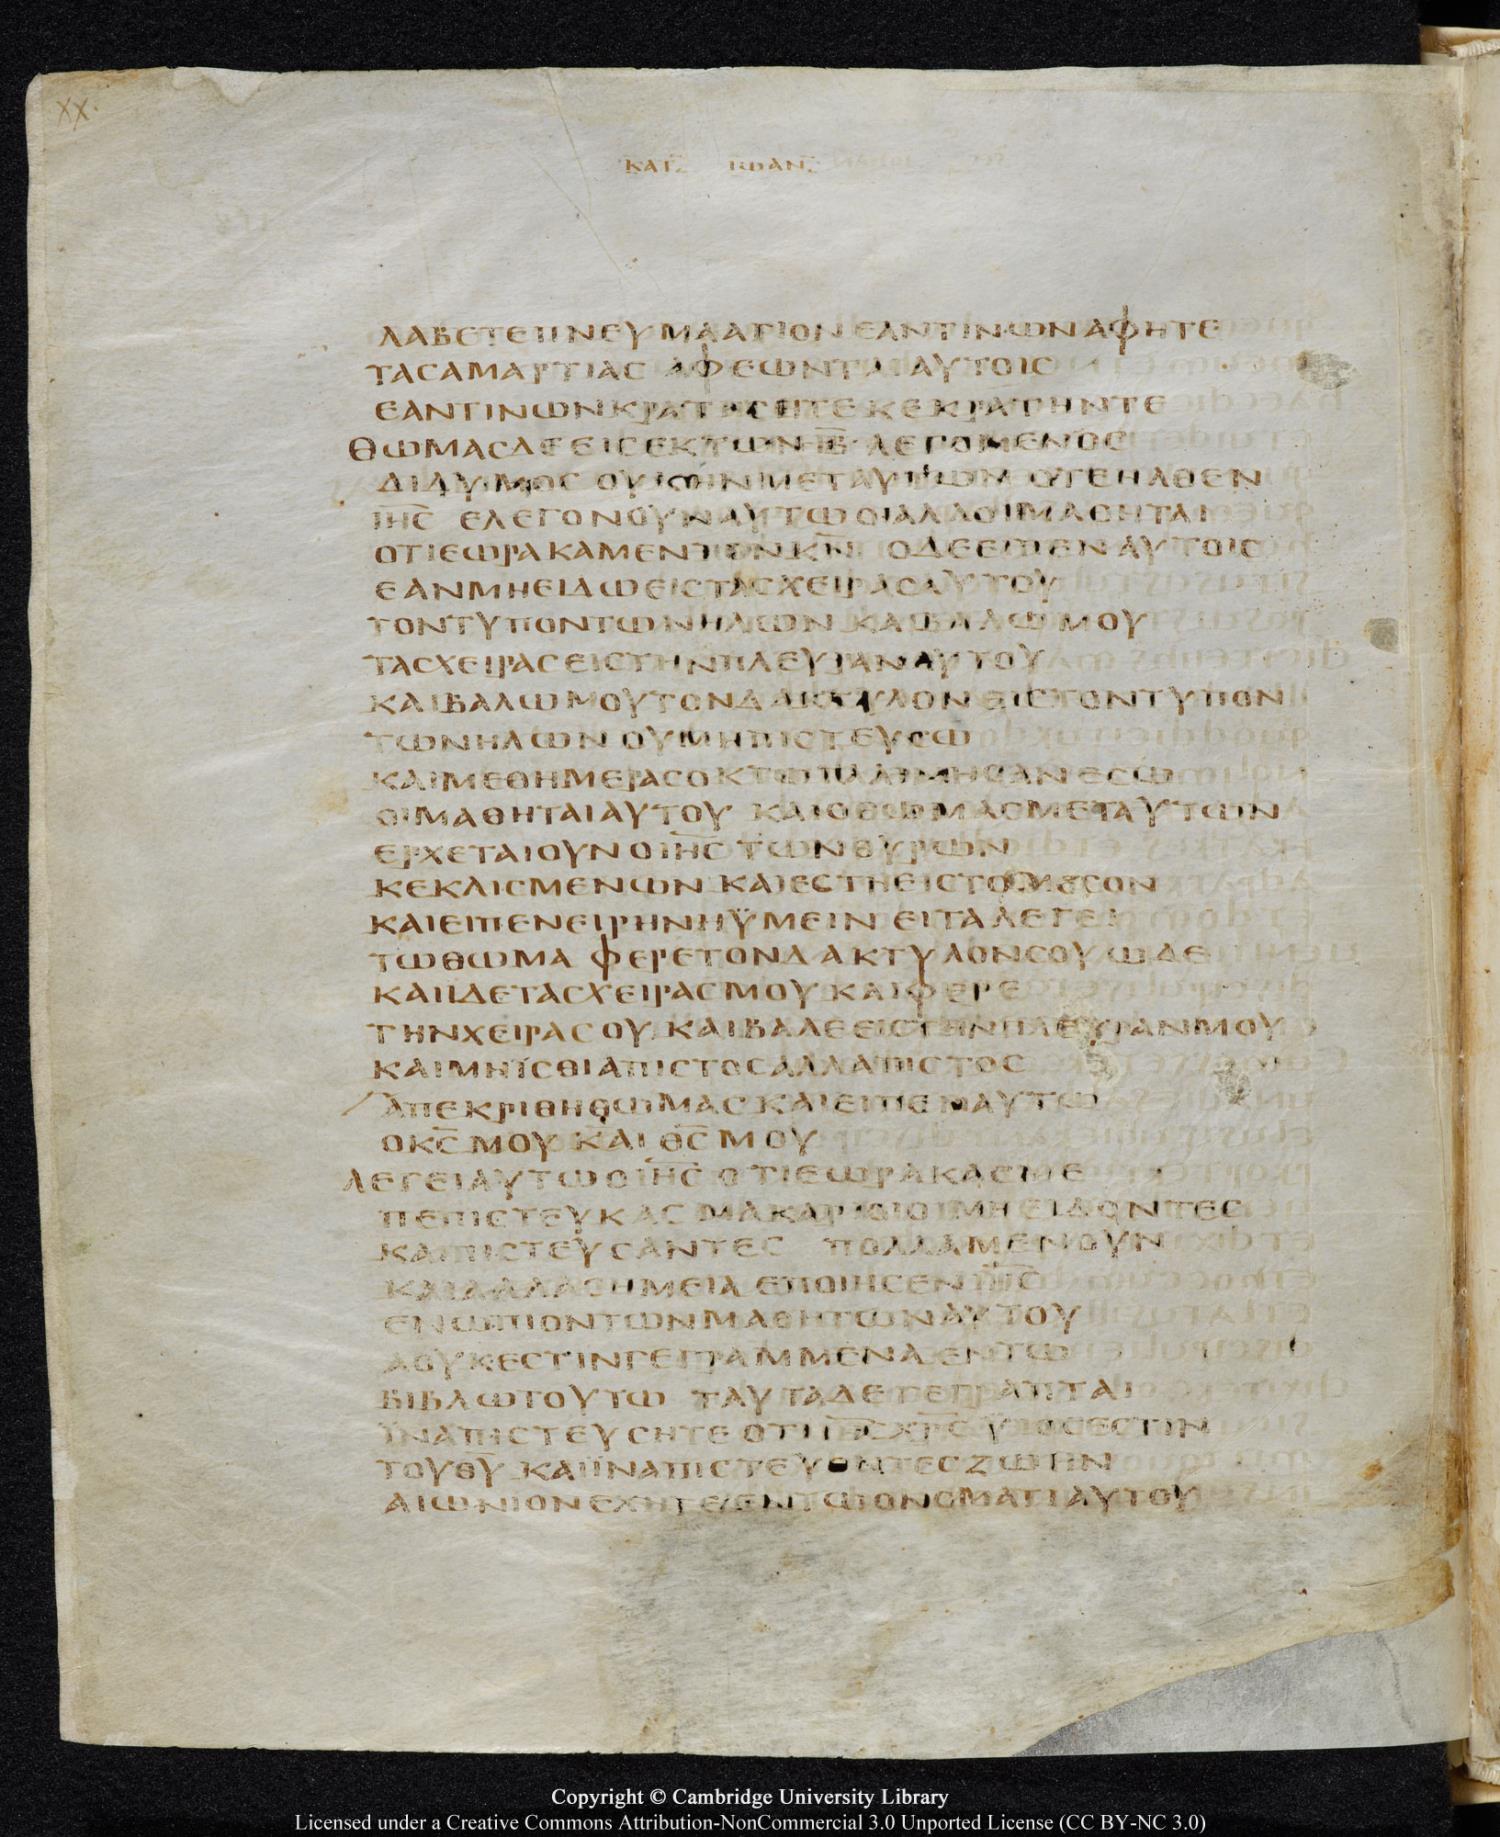 XX.
ΚΑΤ ΙΩΑΝ
ΛΑΒΕΤΕΠΝΕΥΜΑΑΓΙΟΝ ΕΑΝΤΙΝΩΝΑΦΗΤΕ
ΤΑϹΑΜΑΡΤΙΑϹ ΑΦΕΩΝΤΑΙΑΥΤΟΙϹ
ΕΑΝΤΙΝΩΝΚΡΑΤΗϹΗΤΕ ΚΕΚΡΑΤΗΝΤΕ
ΘΩΜΑϹΔΕΕΙϹΕΚΤΩΝΙΒ̅ ΛΕΓΟΜΕΝΟϹ
ΔΙΔΥΜΟϹ ΟΥΚΗΝΜΕΤΑΥΤΩΝ ΟΤΕΗΛΘΕΝ
ΙΗϹ̅ ΕΛΕΓΟΝΟΥΝΑΥΤΩΟΙΑΛΛΟΙΜΑΘΗΤΑΙ
ΟΤΙΕΩΡΑΚΑΜΕΝΤΟΝΚ̅Ν̅ ΟΔΕΕΙΠΕΝΑΥΤΟΙϹ
ΕΑΝΜΗΕΙΔΩΕΙϹΤΑϹΧΕΙΡΑϹΑΥΤΟΥ
ΤΟΝΤΥΠΟΝΤΩΝΗΛΩΝ ΚΑΙΒΑΛΩΜΟΥ
ΤΑϹΧΕΙΡΑϹΕΙϹΤΗΝΠΛΕΥΡΑΝΑΥΤΟΥ
ΚΑΙΒΑΛΩΜΟΥΤΟΝΔΑΚΤΥΛΟΝΕΙϹΤΟΝΤΥΠΟΝ
ΤΩΝΗΛΩΝ ΟΥΜΗΠΙϹΤΕΥϹΩ
ΚΑΙΜΕΘΗΜΕΡΑϹΟΚΤΩ ΕϹΩ
ΟΙΜΑΘΗΤΑΙΑΥΤΟΥ ΚΑΙΟΘΩΜΑϹΜΕΤΑΥΤΩΝ
ΕΡΧΕΤΑΙΟΥΝΟΙΗϹ̅ΤΩΝΘΥΡΩΝ
ΚΕΚΛΙϹΜΕΝΩΝ ΚΑΙΕϹΤΗΕΙϹΤΟΜΕϹΟΝ
ΚΑΙΕΙΠΕΝΕΙΡΗΝΗΫΜΕΙΝ ΕΙΤΑΛΕΓΕΙ
ΤΩΘΩΜΑ ΦΕΡΕΤΟΝΔΑΚΤΥΛΟΝϹΟΥΩΔΕ
ΚΑΙΙΔΕΤΑϹΧΕΙΡΑϹΜΟΥ ΚΑΙΦΕΡΕ
ΤΗΝΧΕΙΡΑϹΟΥ ΚΑΙΒΑΛΕΕΙϹΤΗΝΠΛΕΥΡΑΝΜΟΥ
ΚΑΙΜΗΪϹΘΙΑΠΙϹΤΟϹΑΛΛΑΠΙϹΤΟϹ
ΑΠΕΚΡΙΘΗΘΩΜΑϹΚΑΙΕΙΠΕΝΑΥΤΩ
ΟΚ̅Ϲ̅ΜΟΥ ΚΑΙ Θ̅Ϲ̅ΜΟΥ
ΛΕΓΕΙΑΥΤΩΟΙΗϹ̅ ΟΤΙΕΩΡΑΚΑϹΜΕ
ΠΕΠΙϹΤΕΥΚΑϹ ΜΑΚΑΡΙΟΙΟΙΜΗΕΙΔΟΝΤΕϹ
ΚΑΙΠΙϹΤΕΥϹΑΝΤΕϹ ΠΟΛΛΑΜΕΝΟΥΝ
ΚΑΙΑΛΛΑϹΗΜΕΙΑ ΕΠΟΙΗϹΕΝΟΙΗϹ̅
ΕΝΩΠΙΟΝΤΩΝΜΑΘΗΤΩΝΑΥΤΟΥ
ΑΟΥΚΕϹΤΙΝΓΕΓΡΑΜΜΕΝΑΕΝΤΩ
ΒΙΒΛΩΤΟΥΤΩ ΤΑΥΤΑΔΕΓΕΓΡΑΠΤΑΙ
ΪΝΑΠΙϹΤΕΥϹΗΤΕ ΟΤΙΙΗϹ̅ΧΡϹ̅ΥΙΟϹΕϹΤΙΝ
ΤΟΥΘ̅Υ̅ ΚΑΙΙΝΑΠΙϹΤΕΥΟΝΤΕϹΖΩΗΝ
ΑΙΩΝΙΟΝΕΧΗΤΕΕΝΤΩΟΝΟΜΑΤΙΑΥΤΟΥ
Copyright © Cambridge University Library
Licensed under a Creative Commons Attribution-NonCommercial 3.0 Unported License (CC BY-NC 3.0)